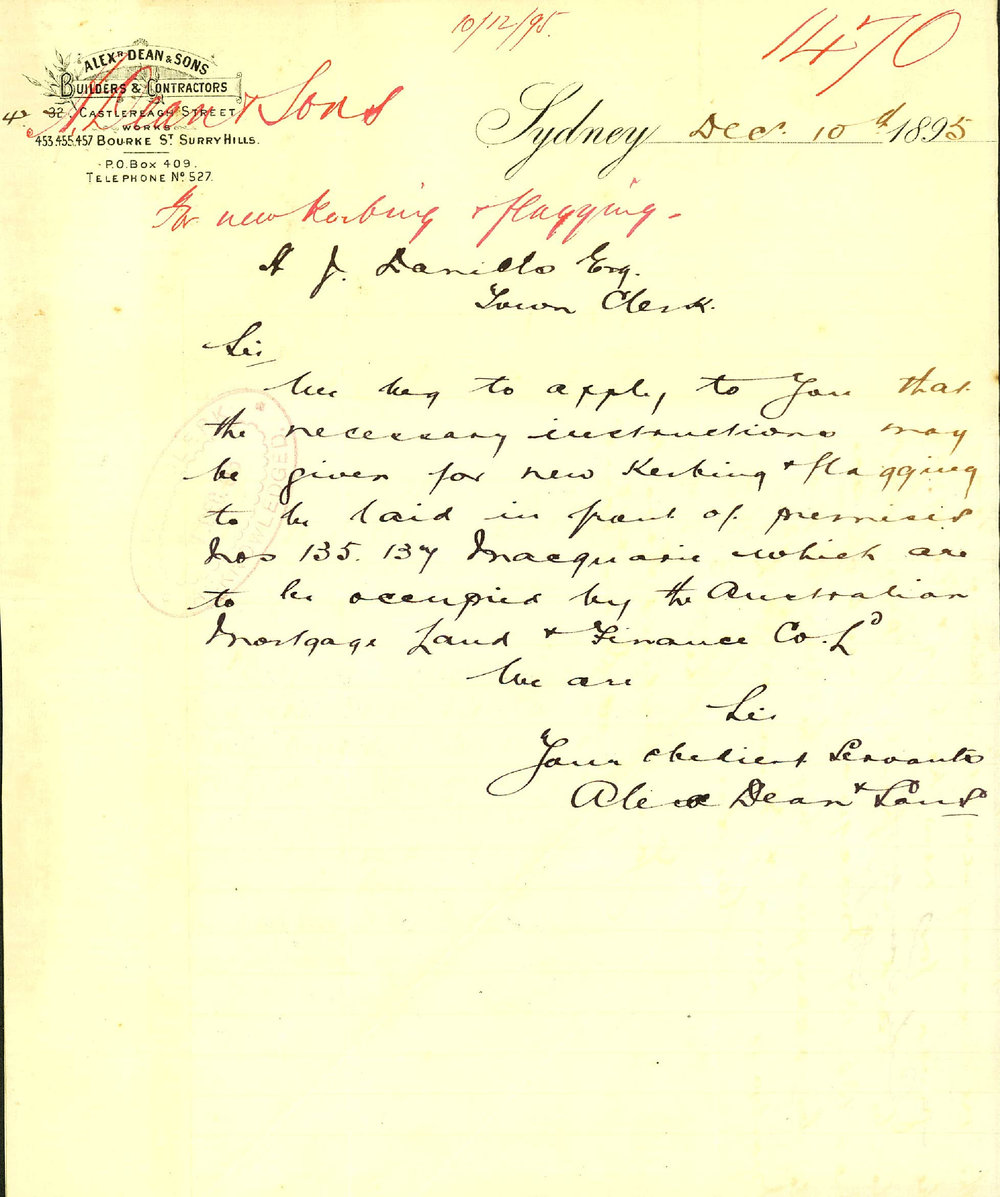 10/12/95.
1470
ALEXR DEAN & SONS
BUILDERS & CONTRACTORS
A. Dean & Sons
42 32 CASTLEREAGH STREET
WORKS
453.455.457 BOURKE ST SURRY HILLS.
P.O. BOX 409.
TELEPHONE No 527.
Sydney Decr. 10th 1895
For new kerbing & flagging -
A J. Daniels Esq.
Town Clerk.
Sir
We beg to apply to You that
the necessary instructions may
be given for new Kerbing & flagging
to be laid in front of premises
Nos 135. 137 Macquarie which are
to be occupied by the Australian
Mortgage Land & Finance Co. Ld
We are
Sir
Your obedient Servants
Alex Dean & Sons